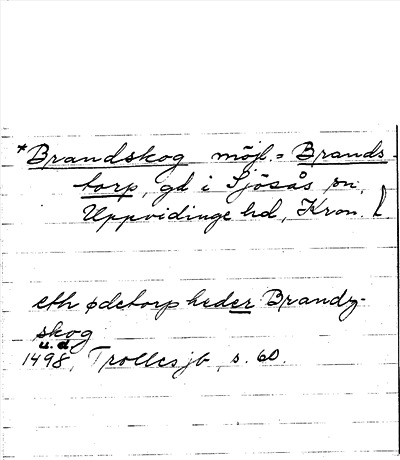 *Brandskog möjl. = Brands-
torp, gd i Sjösås sn,
Uppvidinge hd, Kron. l
eth ødetorp heder Brandz-
skog
u.d.
1498, Trolles jb, s. 60.